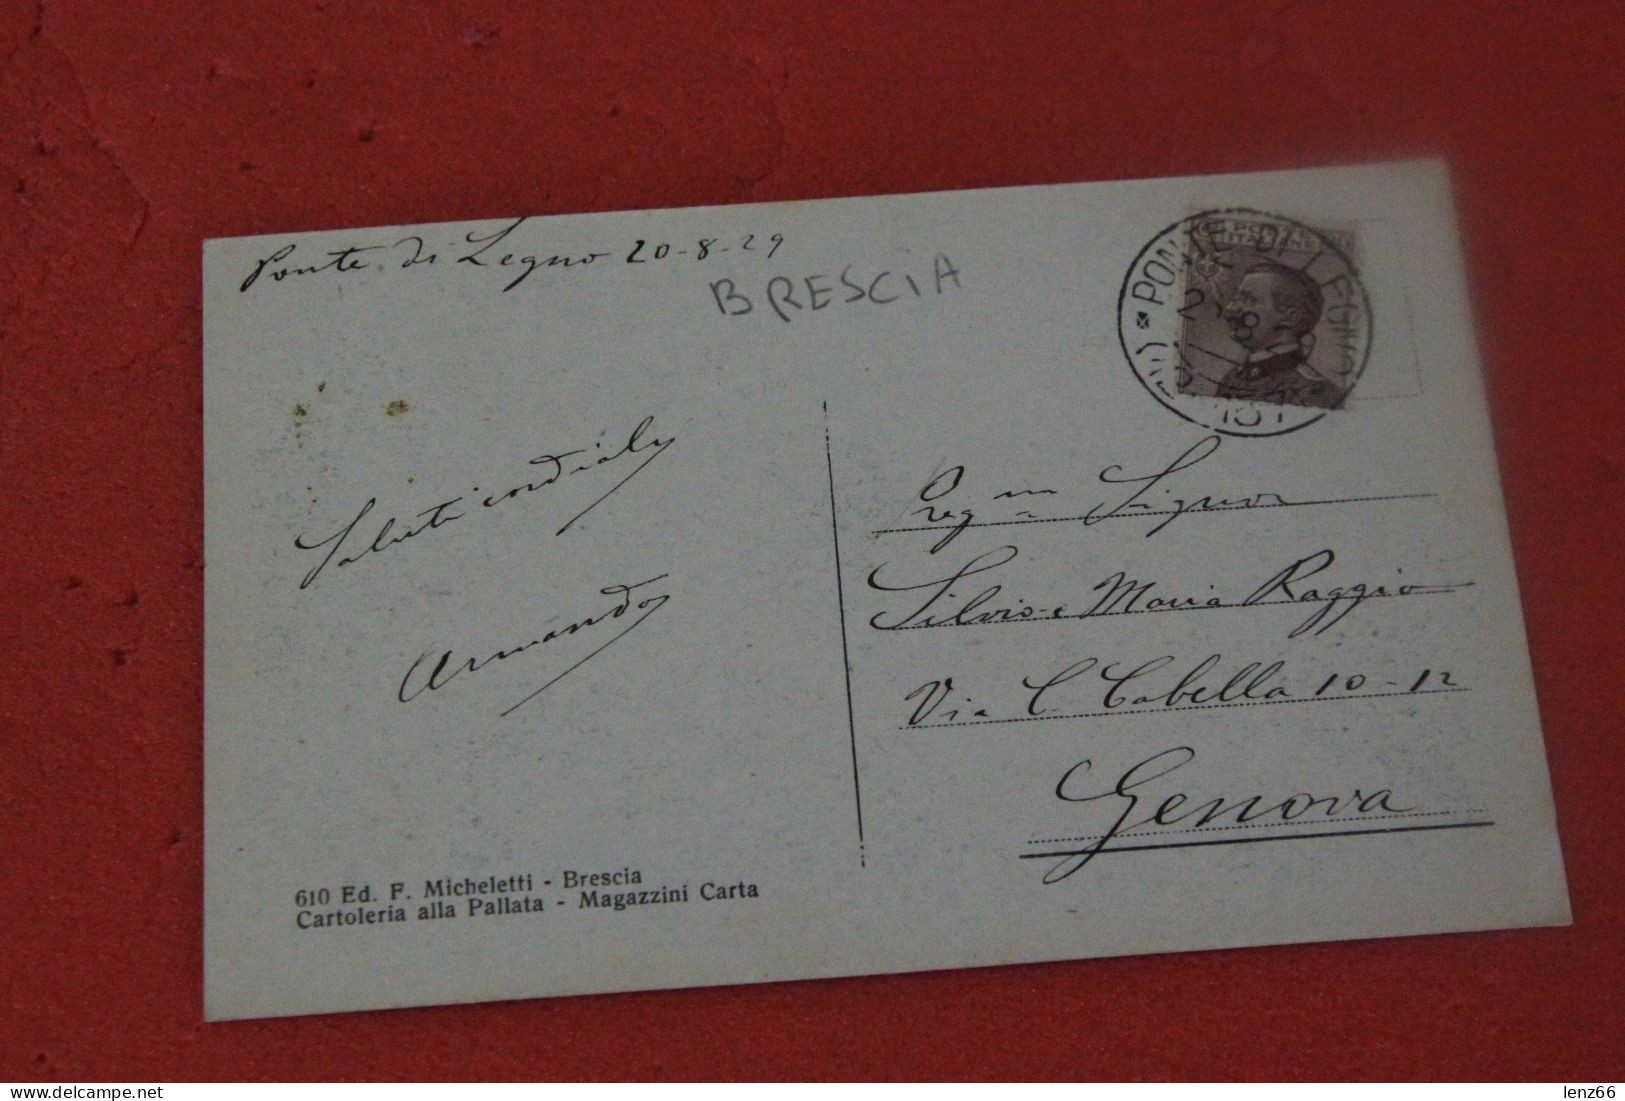 Ponte di Legno 20-8-29
BRESCIA
PONTE DI LEGNO
Saluti cordiali
Armando
Preg.mi Signori
Silvio e Maria Raggio
Via C. Cabella 10-12
Genova
610 Ed. F. Micheletti - Brescia
Cartoleria alla Pallata - Magazzini Carta
lenz66